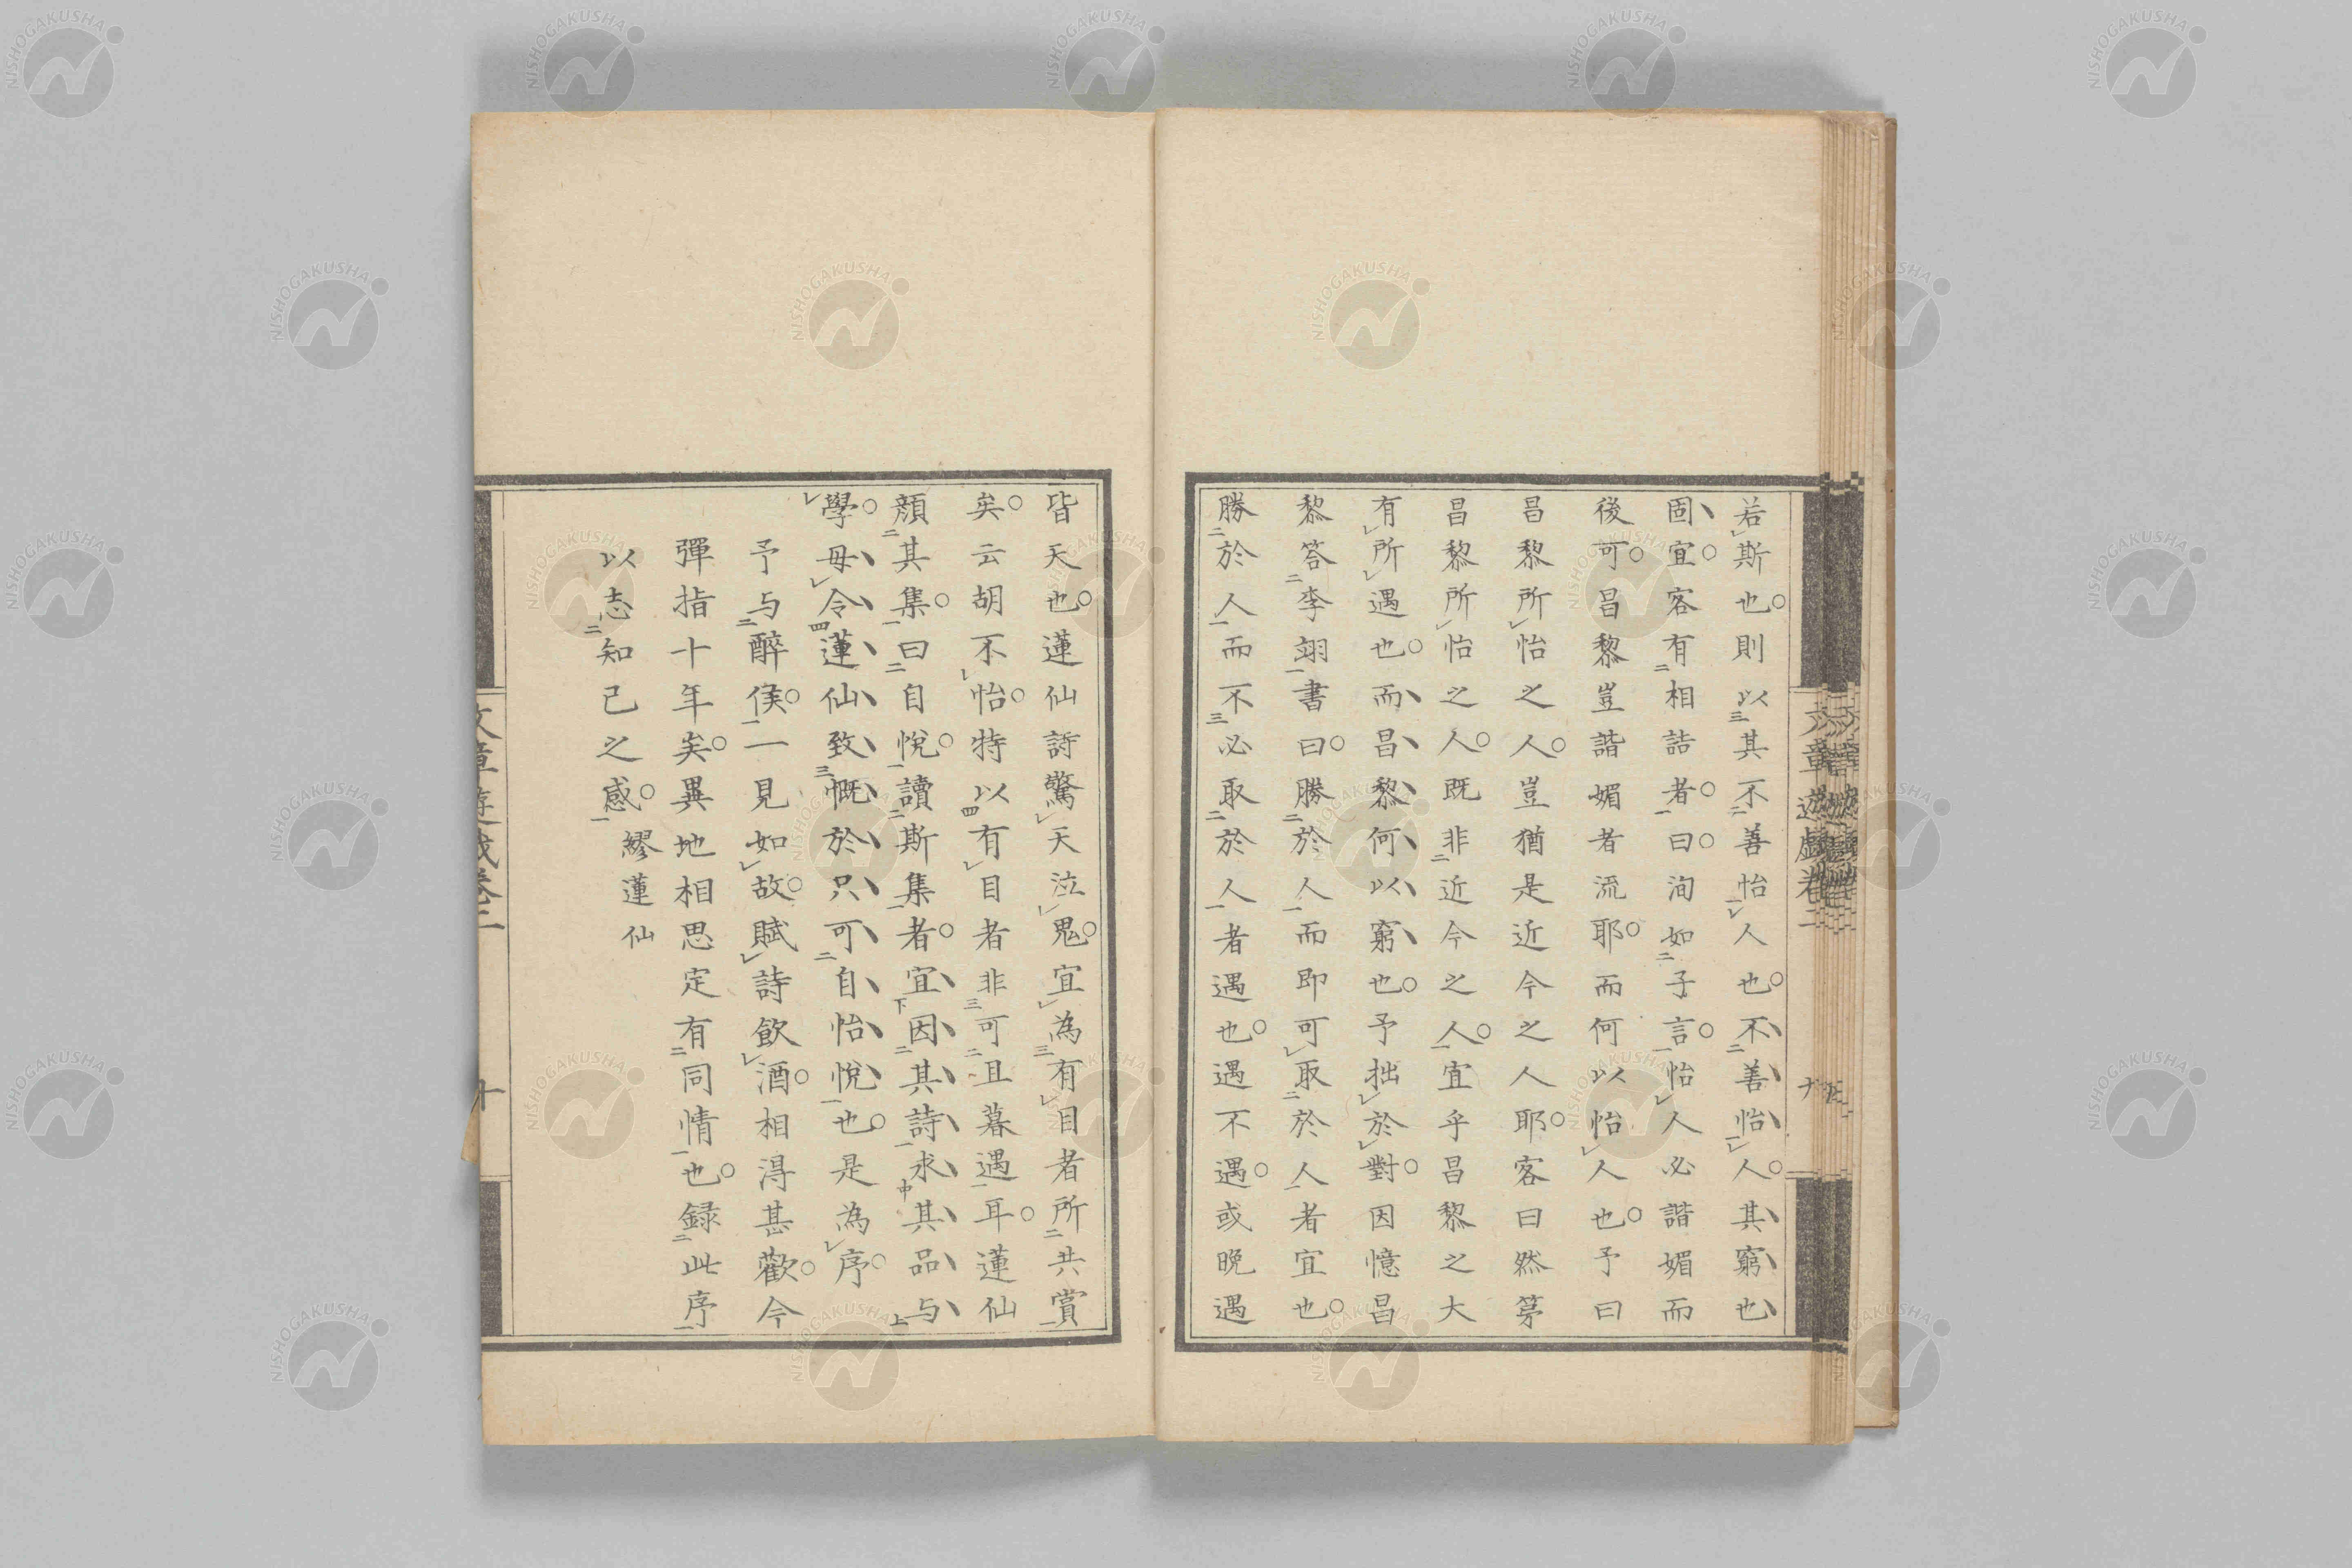 若斯也則以其不善怡人也不善怡人其窮也
固宜客有相詰者曰洵如子言怡人必諧媚而
後可昌黎豈諧媚者流耶而何以怡人也予曰
昌黎所怡之人豈猶是近今之人耶客曰然第
昌黎所怡之人既非近今之人宜乎昌黎之大
有所遇也而昌黎何以窮也予拙於對因憶昌
黎答李翊書曰勝於人而即可取於人者宜也
勝於人而不必取於人者遇也遇不遇或晚遇
皆天也蓮仙詩驚天泣鬼宜為有目者所共賞
矣云胡不怡特以有目者非可旦暮遇耳蓮仙
顔其集曰自悅讀斯集者宜因其詩求其品与
學毋令蓮仙致慨於只可自怡悅也是為序
予与醉侯一見如故賦詩飲酒相淂甚歡今
彈指十年矣異地相思定有同情也録此序
以志知己之感 繆蓮仙
文章遊戲卷二
十
NISHOGAKUSHA